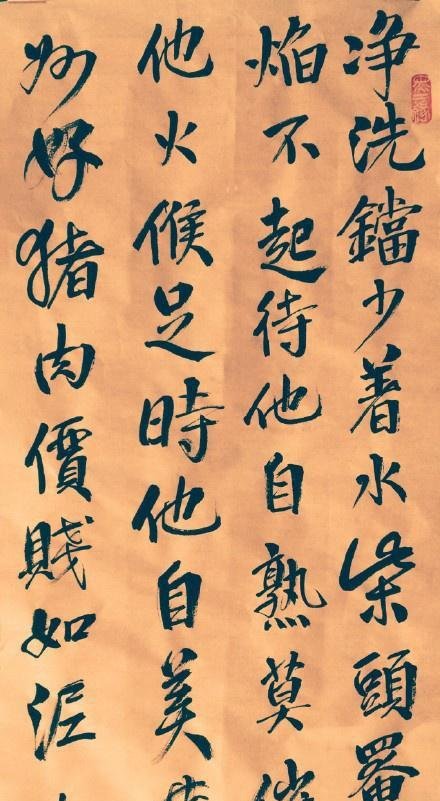 净洗鐺少着水柴頭罨
焰不起待他自熟莫催
他火候足時他自美
州好猪肉價賤如泥